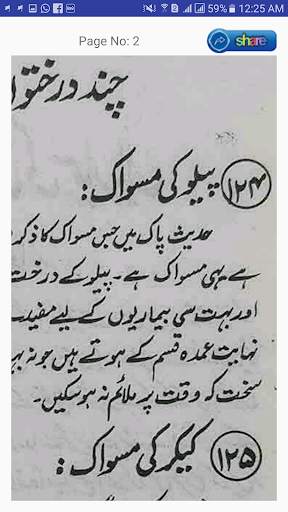 59% 12:25 AM
Page No: 2
share
چند درختو
۱۲۴ پیلو کی مسواک :
حدیث پاک میں جس مسواک کا ذکر
ہے یہی مسواک ہے۔ پیلو کے درخت
اور بہت سی بیماریوں کے لیے مفید۔
نہایت عمدہ قسم کے ہوتے ہیں جو نہ بہ
سخت کہ وقت پر ملائم نہ ہوسکیں۔
۱۲۵ کیکر کی مسواک :